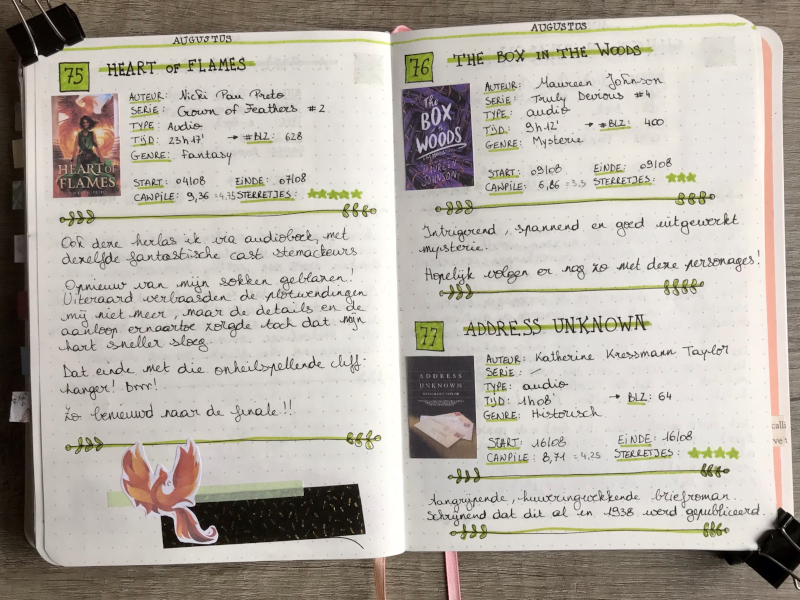 AUGUSTUS
75 HEART OF FLAMES
HEART
OF
FLAMES
AUTEUR: Nicki Pau Preto
SERIE: Crown of Feathers #2
TYPE: Audio
TIJD: 23h17' → #BLZ: 628
GENRE: Fantasy
START: 04/08 EINDE: 07/08
CAWPILE: 9,36 = 4.75 STERRETJES:
Ook deze herlas ik via audioboek, met
dezelfde fantastische cast stemacteurs
Opnieuw van mijn sokken geblazen!
Uiteraard verbaasden de plotwendingen
mij niet meer, maar de details en de
aanloop ernaartoe zorgde toch dat mijn
hart sneller sloeg.
Dat einde met die onheilspellende cliff-
hanger! Brrr!
Zo benieuwd naar de finale!!
AUGUSTUS
76 THE BOX IN THE WOODS
The
BOX
in the
WOODS
MAUREEN
JOHNSON
AUTEUR: Maureen Johnson
SERIE: Truly Devious #4
TYPE: audio
TIJD: 9h12' → #BLZ: 400
GENRE: Mysterie
START: 09/08 EINDE: 09/08
CAWPILE: 6,86 = 3.5 STERRETJES:
Intrigerend, spannend en goed uitgewerkt
mysterie.
Hopelijk volgen er nog zo met deze personages!
77 ADDRESS UNKNOWN
ADDRESS
UNKNOWN
AUTEUR: Katherine Kressmann Taylor
SERIE: /
TYPE: audio
TIJD: 1h08' → BLZ: 64
GENRE: Historisch
START: 16/08 EINDE: 16/08
CAWPILE: 8,71 = 4,25 STERRETJES:
Aangrijpende, huiveringwekkende briefroman.
Schrijnend dat dit al in 1938 werd gepubliceerd.